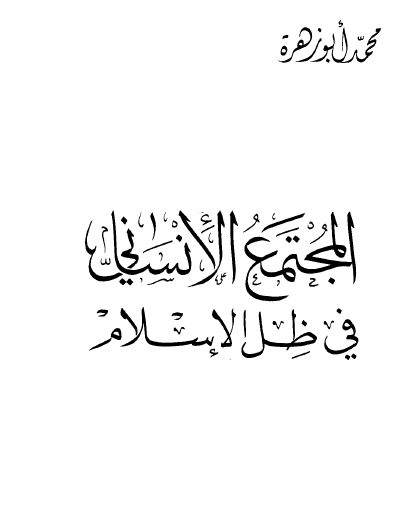 محمد أبو زهرة
المجتمع الإنساني
في ظل الإسلام